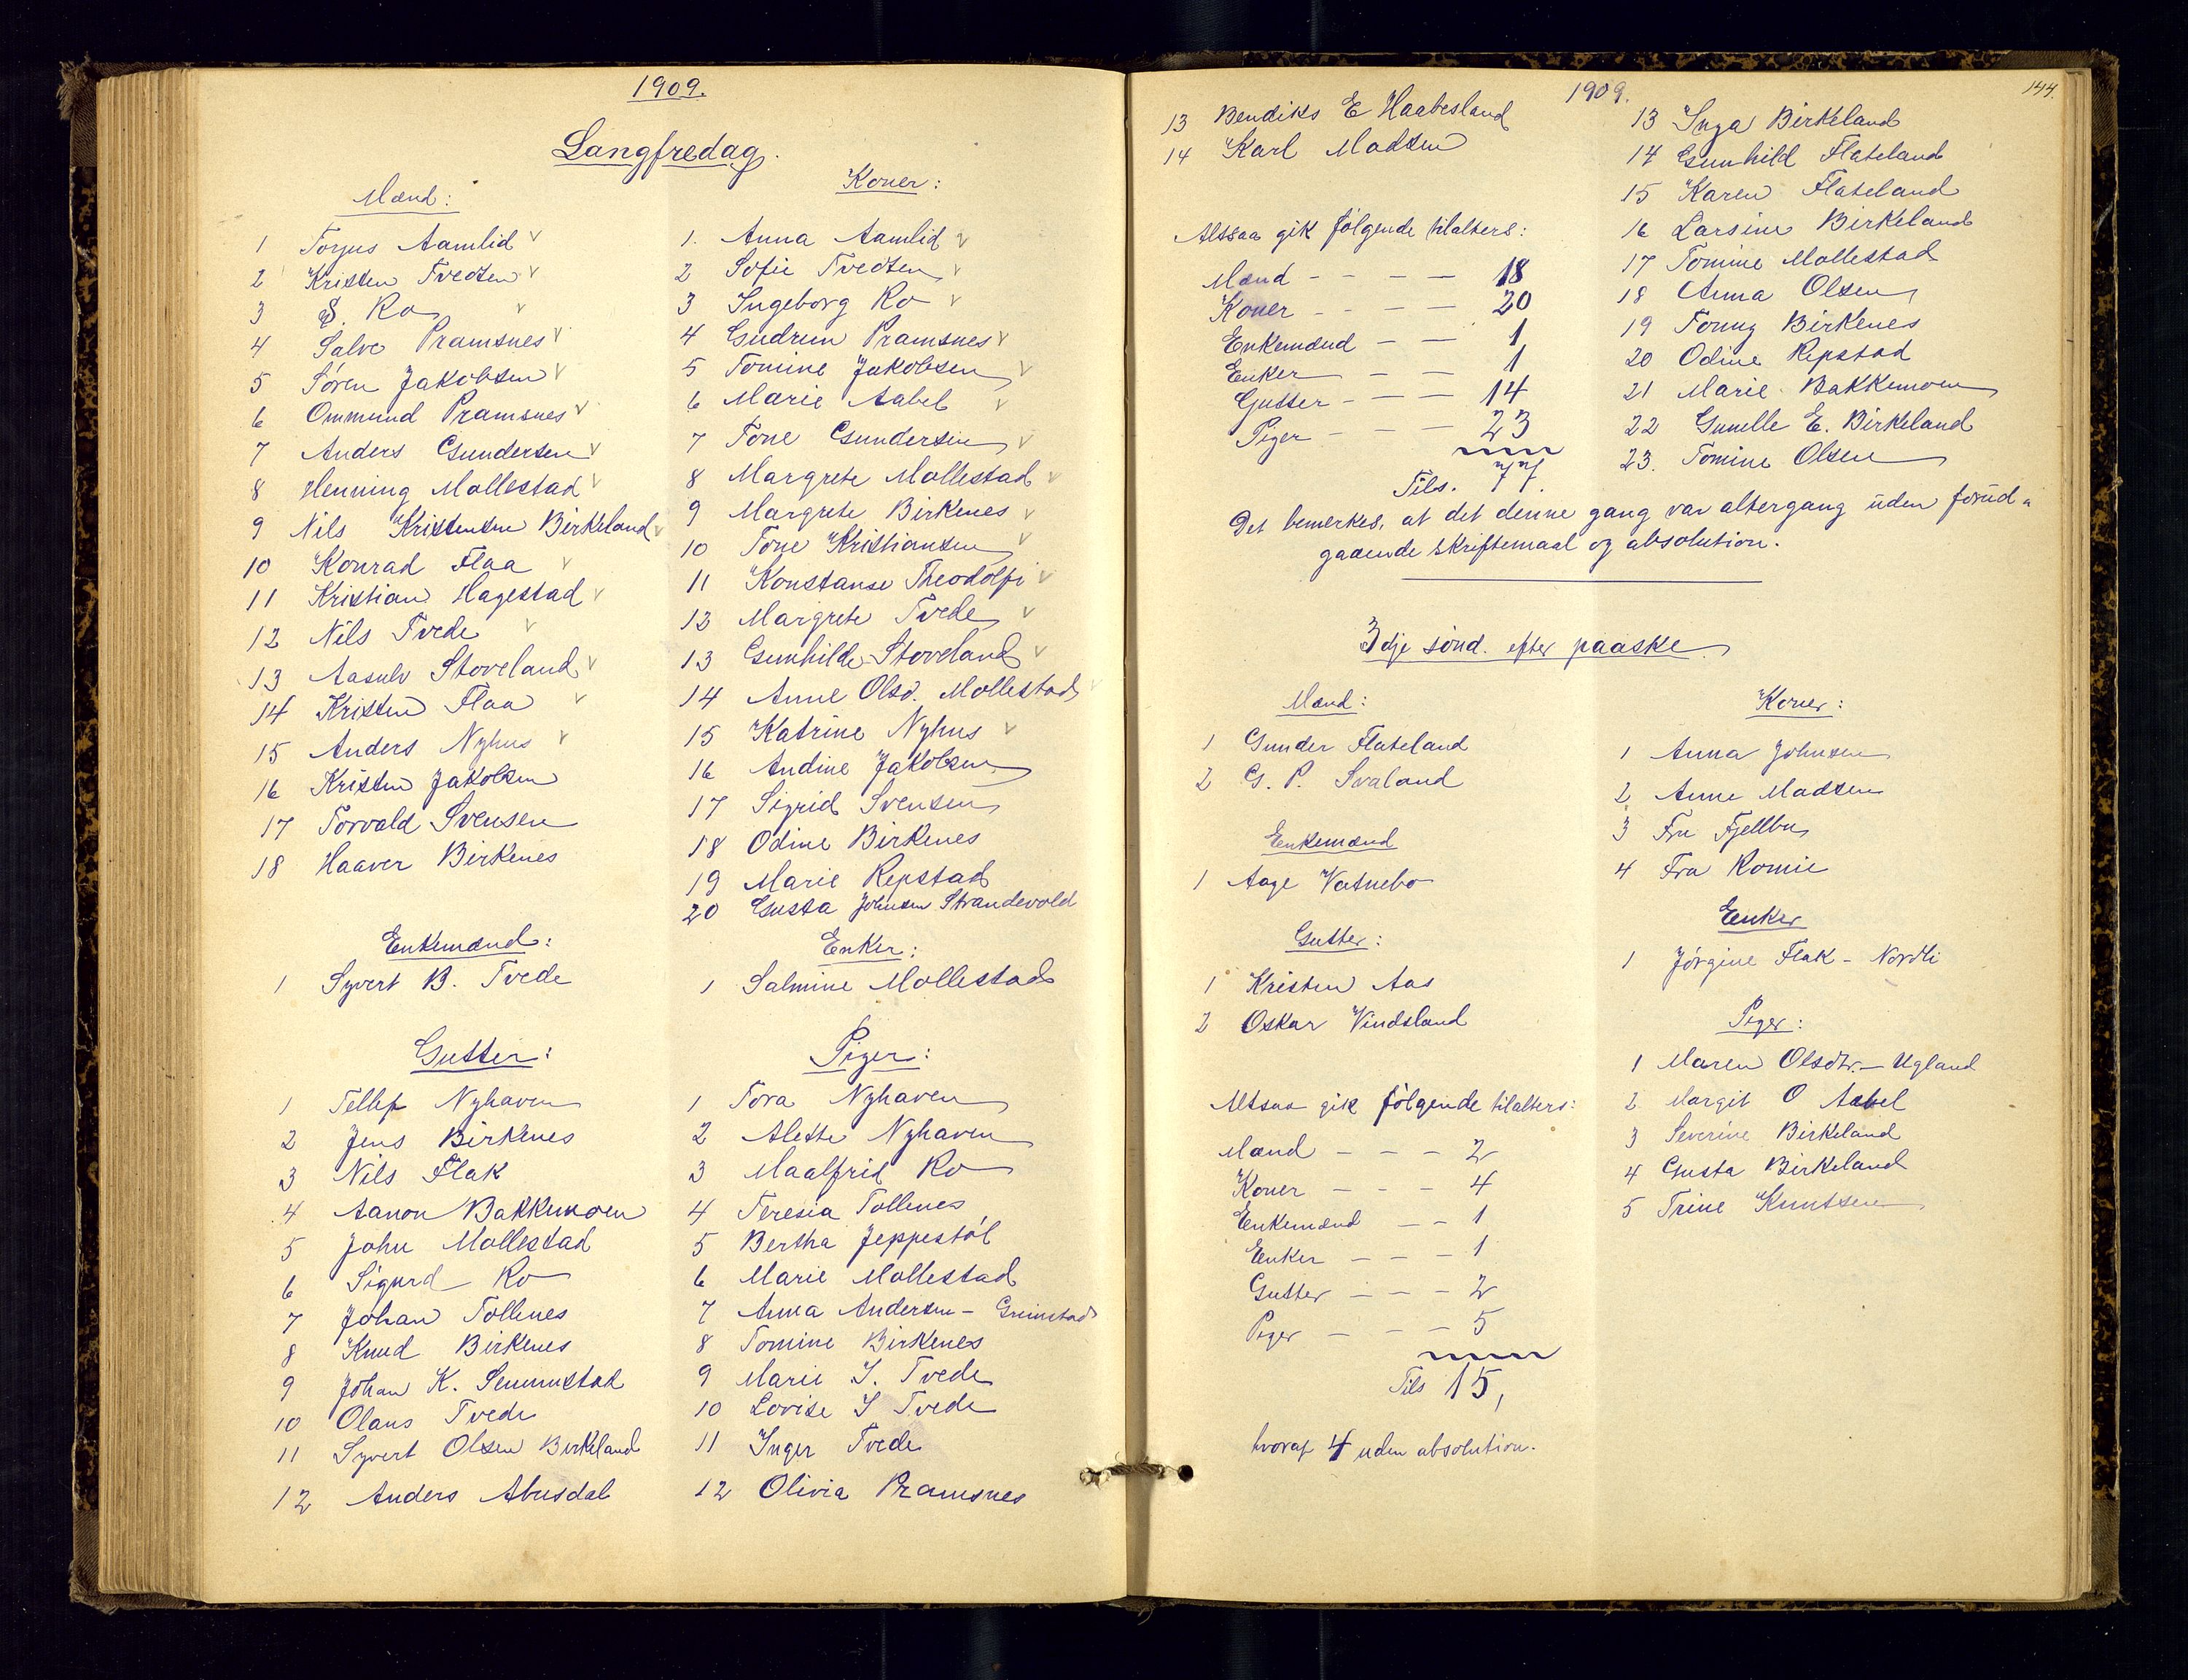 1909.
Langfredag.
Mænd:
1 Torjus Aamlid v
2 Kristen Tvedten v
3 S. Ro v
4 Salve Pramsnes v
5 Søren Jakobsen v
6 Ommund Pramsnes v
7 Anders Gundersen v
8 Henning Mollestad v
9 Nils Kristensen Birkeland v
10 Konrad Flaa v
11 Kristian Hagestad v
12 Nils Tvede v
13 Aasulv Stoveland v
14 Kristen Flaa v
15 Anders Nyhus v
16 Kristen Jakobsen
17 Torvald Svensen
18 Haaver Birkenes
Enkemænd:
1 Syvert B. Tvede
Gutter:
1 Tellef Nyhaven
2 Jens Birkenes
3 Nils Flak
4 Aanon Bakkemoen
5 John Mollestad
6 Sigurd Ro
7 Johan Tollenes
8 Knud Birkenes
9 Johan K. Senumstad
10 Olaus Tvede
11 Syvert Olsen Birkeland
12 Anders Abusdal
Koner:
1. Anna Aamlid v
2 Sofie Tvedten v
3 Ingeborg Ro v
4 Gudrun Pramsnes v
5 Tomine Jakobsen v
6 Marie Aabel v
7 Tone Gundersen v
8 Margrete Mollestad v
9 Margrete Birkenes v
10 Tone Kristiansen v
11 Konstanse Theodolfi v
12 Margrete Tvede v
13 Gunhilde Stoveland v
14 Anne Olsd. Mollestad v
15 Katrine Nyhus v
16 Andine Jakobsen
17 Sigrid Svensen
18 Odine Birkenes
19 Marie Repstad
20 Gusta Johnsen Strandevold
Enker:
1 Salmine Mollestad
Piger:
1 Tora Nyhaven
2 Alette Nyhaven
3 Maalfrid Ro
4 Teresia Tollenes
5 Bertha Jeppestøl
6 Marie Mollestad
7 Anna Andersen - Grimstad
8 Tomine Birkenes
9 Marie S. Tvede
10 Lovise S Tvede
11 Inger Tvede
12 Olivia Pramsnes
1909.
144.
13 Bendiks E Haabesland
14 Karl Madsen
Altsaa gik følgende tilalters:
Mænd - - - - 18
Koner - - - - 20
Enkemænd - - 1
Enker - - 1
Gutter - - - 14
Piger - - - 23
Tils. 77.
13 Inga Birkeland
14 Gunhild Flateland
15 Karen Flateland
16 Larsine Birkeland
17 Tomine Mollestad
18 Anna Olsen
19 Tonny Birkenes
20 Odine Repstad
21 Marie Bakkemoen
22 Gunelle E. Birkeland
23. Tomine Olsen
Det bemerkes, at det denne gang var altergang uden forud-
gaaende skriftemaal og absolution.
3dje sønd. efter paaske
Mænd:
1 Gunder Flateland
2 G. P. Svaland
Enkemænd
1 Aage Vatnebo
Gutter:
1 Kristen Aas
2 Oskar Vindsland
Altsaa gik følgende tilalters:
Mænd - - - 2
Koner - - - 4
Enkemænd - - 1
Enker - - - 1
Gutter - - - 2
Piger - - - 5
Tils 15,
hvoraf 4 uden absolution.
Koner:
1 Anna Johnsen
2 Anne Madsen
3 Fru Fjellbu
4 Fra Romie
Enker
1 Jørgine Flak - Nordli
Piger:
1 Maren Olsdtr. - Ugland
2 Margit O Aabel
3 Severine Birkeland
4 Gusta Birkeland
5 Trine Knutsen